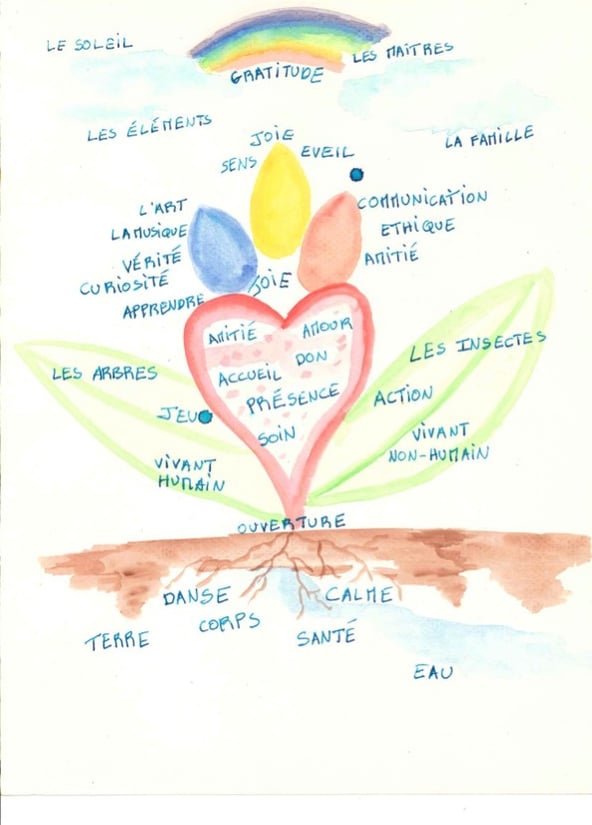 LE SOLEIL
LES MAITRES
GRATITUDE
LES ÉLÉMENTS
LA FAMILLE
JOIE
SENS
EVEIL
L'ART
LA MUSIQUE
VÉRITÉ
CURIOSITÉ
APPRENDRE
COMMUNICATION
ETHIQUE
AMITIÉ
JOIE
AMITIÉ
AMOUR
DON
ACCUEIL
PRÉSENCE
SOIN
LES ARBRES
JEU
VIVANT
HUMAIN
LES INSECTES
ACTION
VIVANT
NON-HUMAIN
OUVERTURE
DANSE
CALME
CORPS
TERRE
SANTÉ
EAU